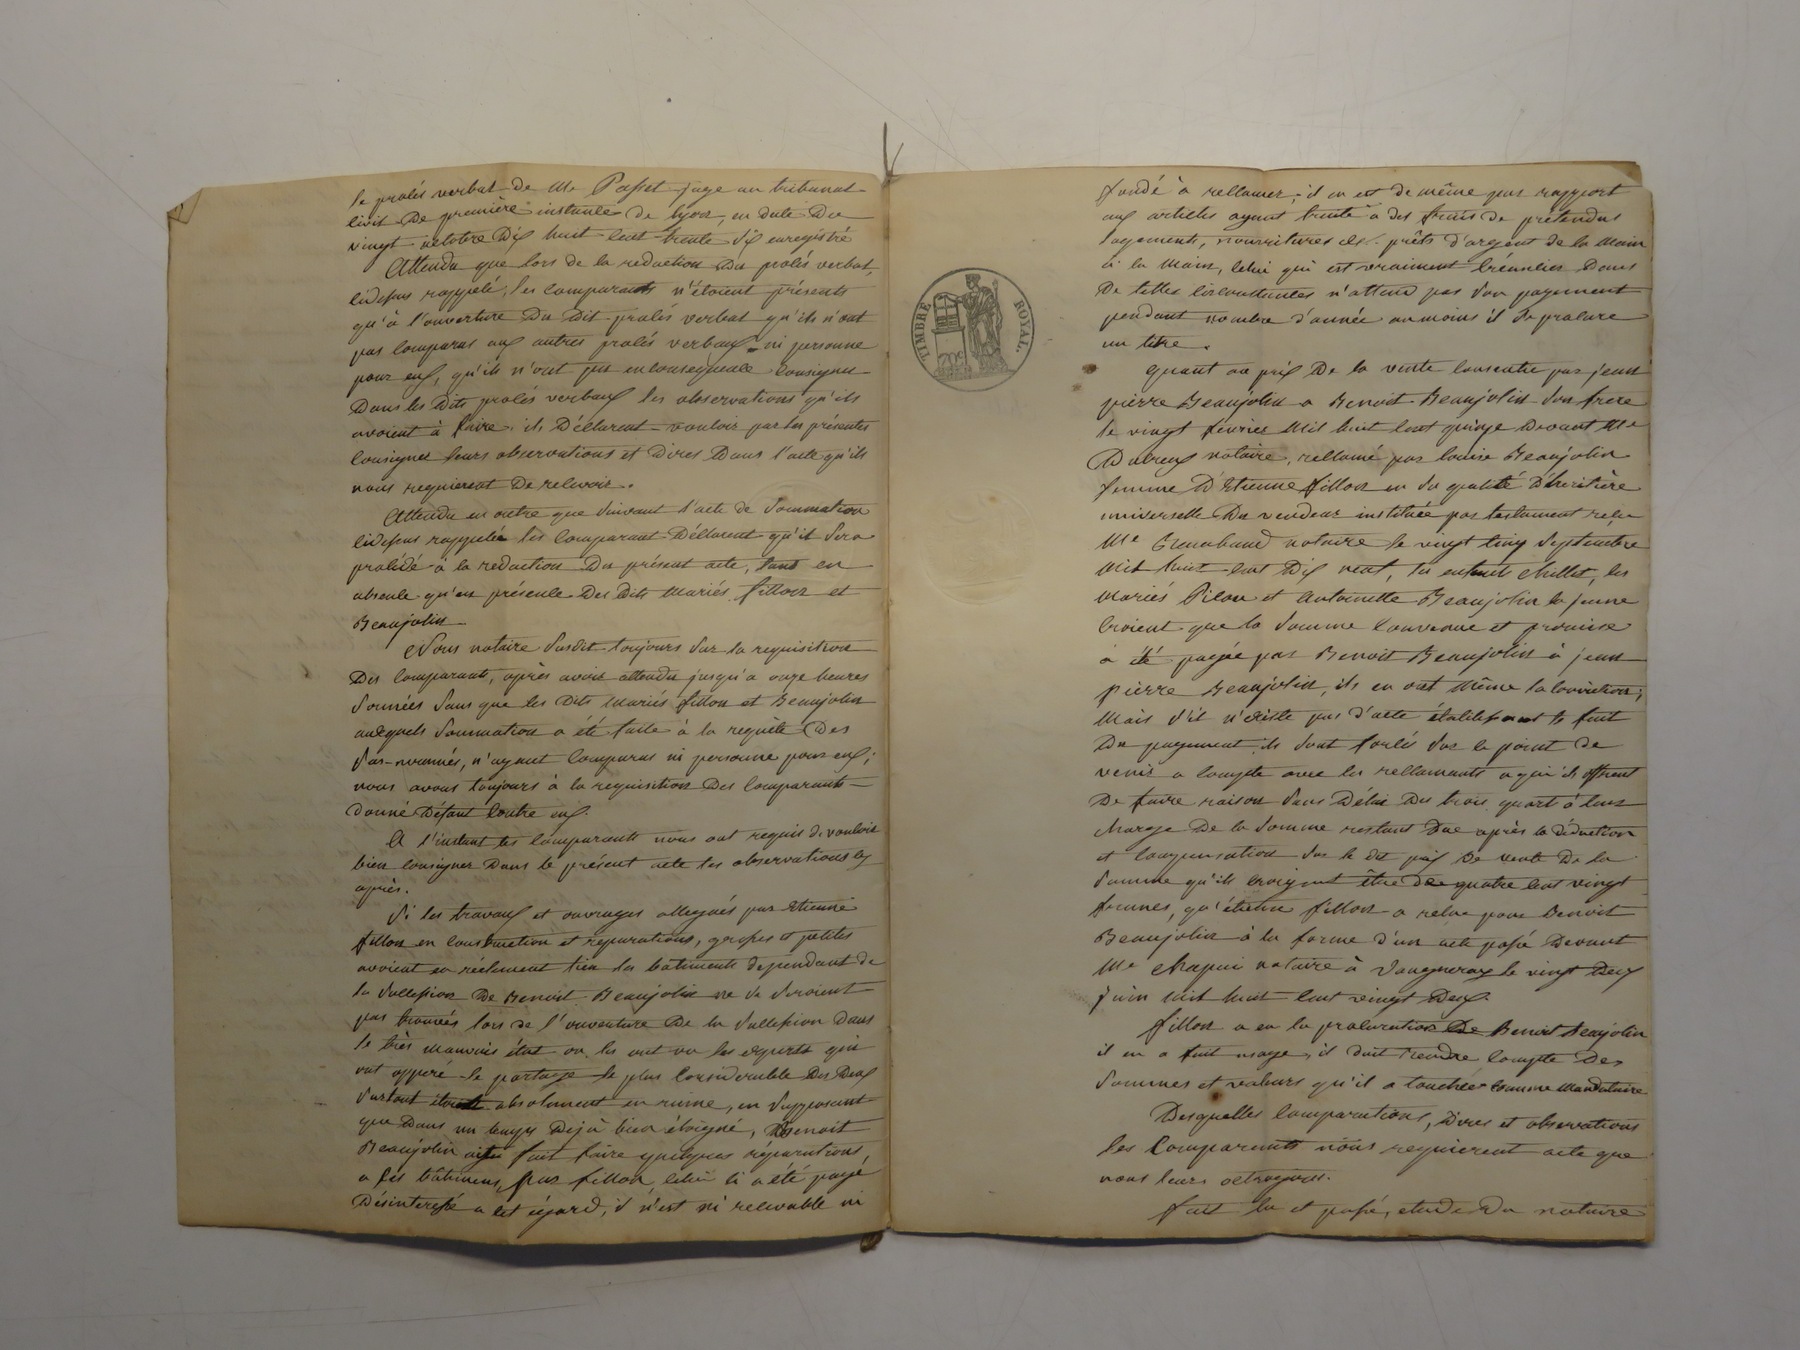 le procés verbal de Mr Passet juge au tribunal
civil De première instance de lyon, en date Du
vingt octobre Dix huit cent trente six enregistré
Attendu que lors de la redaction Du procés verbal
cidessus rappelé, les comparants n'étoient présents
qu'à l'ouverture Du Dit procés verbal qu'ils n'ont
pas comparus aux autres procés verbaux ni personne
pour eux, qu'ils n'ont pas en consequence consigner
Dans les Dits procés verbaux les observations qu'ils
avoient à faire, ils Déclarent vouloir par les présentes
consigner leurs observations et Dires Dans l'acte qu'ils
nous requierent De recevoir.
Attendu en outre que suivant l'acte de sommation
cidessus rappelée les comparant Déclarent qu'il sera
procédé à la redaction Du présent acte, tant en
absence qu'en présence Des Dits Mariés fillon et
Beaujolin
Nous notaire susdit toujours sur la requisition
Des comparants, après avoir attendu jusqu'à onze heures
sonnées sans que les Dits mariés fillon et Beaujolin
auxquels sommation a été faite à la requête Des
sus-nommés, n'ayant comparus ni personne pour eux;
nous avons toujours à la requisition Des comparants
donné Défaut contre eux.
A l'instant les comparants nous ont requis de vouloir
bien consigner Dans le présent acte les observations cy
après.
Si les travaux et ouvrages allegués par Etienne
fillon en construction et reparations, grosses et petites
avoient eu réelement lieu les bâtiments dependant de
la succession De Benoit Beaujolin ne se seroient
pas trouvés lors de l'ouverture De la succession dans
le très mauvais état ou les ont vu les experts qui
ont opperé le partage le plus considerable Des Deux
surtout étoit absolument en ruine, en supposant
que Dans un temps Dejà bien éloigné, Benoit
Beaujolin aitpu fait faire quelques réparations
a ses bâtimens, par fillon, celui ci a été payé
Désinteressé a cet égard, il n'est ni recevable ni
TIMBRE ROYAL.
fondé à reclamer; il en est de même par rapport
aux articles ayant traité a des frais de prétendus
logements, nourritures et prêts d'argent de la main
à la main, celui qui est vraiment créancier Dans
De telles circonstances n'attend pas son payement
pendant nombre d'année aumoins il se procure
un titre.
quant au prix De la vente consentie par jean
pierre Beaujolin a Benoit Beaujolin son frere
le vingt fevrier Mil huit cent quinze Devant Me
notaire, reclamé par louise Beaujolin
femme D'Etienne fillon en sa qualité D'heritière
universelle Du vendeur instituée par testament reçu
Me notaire le vingt cinq septembre
Mil huit cent Dix neuf, les enfants chillet, les
Mariés Pilon et Antoinette Beaujolin la jeune
croient que la somme convenue et promise
a été payée par Benoit Beaujolin à jean
pierre Beaujolin, ils en ont même la conviction;
Mais s'il n'existe pas d'acte établissant le fait
Du payement ils sont forcés sur le point de
venir a compte avec les reclamants a qui ils offrent
De faire raison sans Délai Des trois quart à leur
charge De la somme restant Due après la déduction
et compensation sur le dit prix De vente De la
somme qu'ils croyent être de quatre cent vingt
francs, qu'étienne fillon a reçue pour Benoit
Beaujolin à la forme d'un acte passé Devant
Me chapuis notaire à Vaugneray le vingt Deux
juin Mil huit cent vingt Deux.
fillon a eu la procuration De Benoit Beaujolin
il en a fait usage, il doit rendre compte Des
sommes et valeurs qu'il a touchées comme Mandataire
Desquelles comparutions, Dires et observations
les Comparents nous requierent acte que
nous leurs octroyons.
fait lu et passé, etude Du notaire